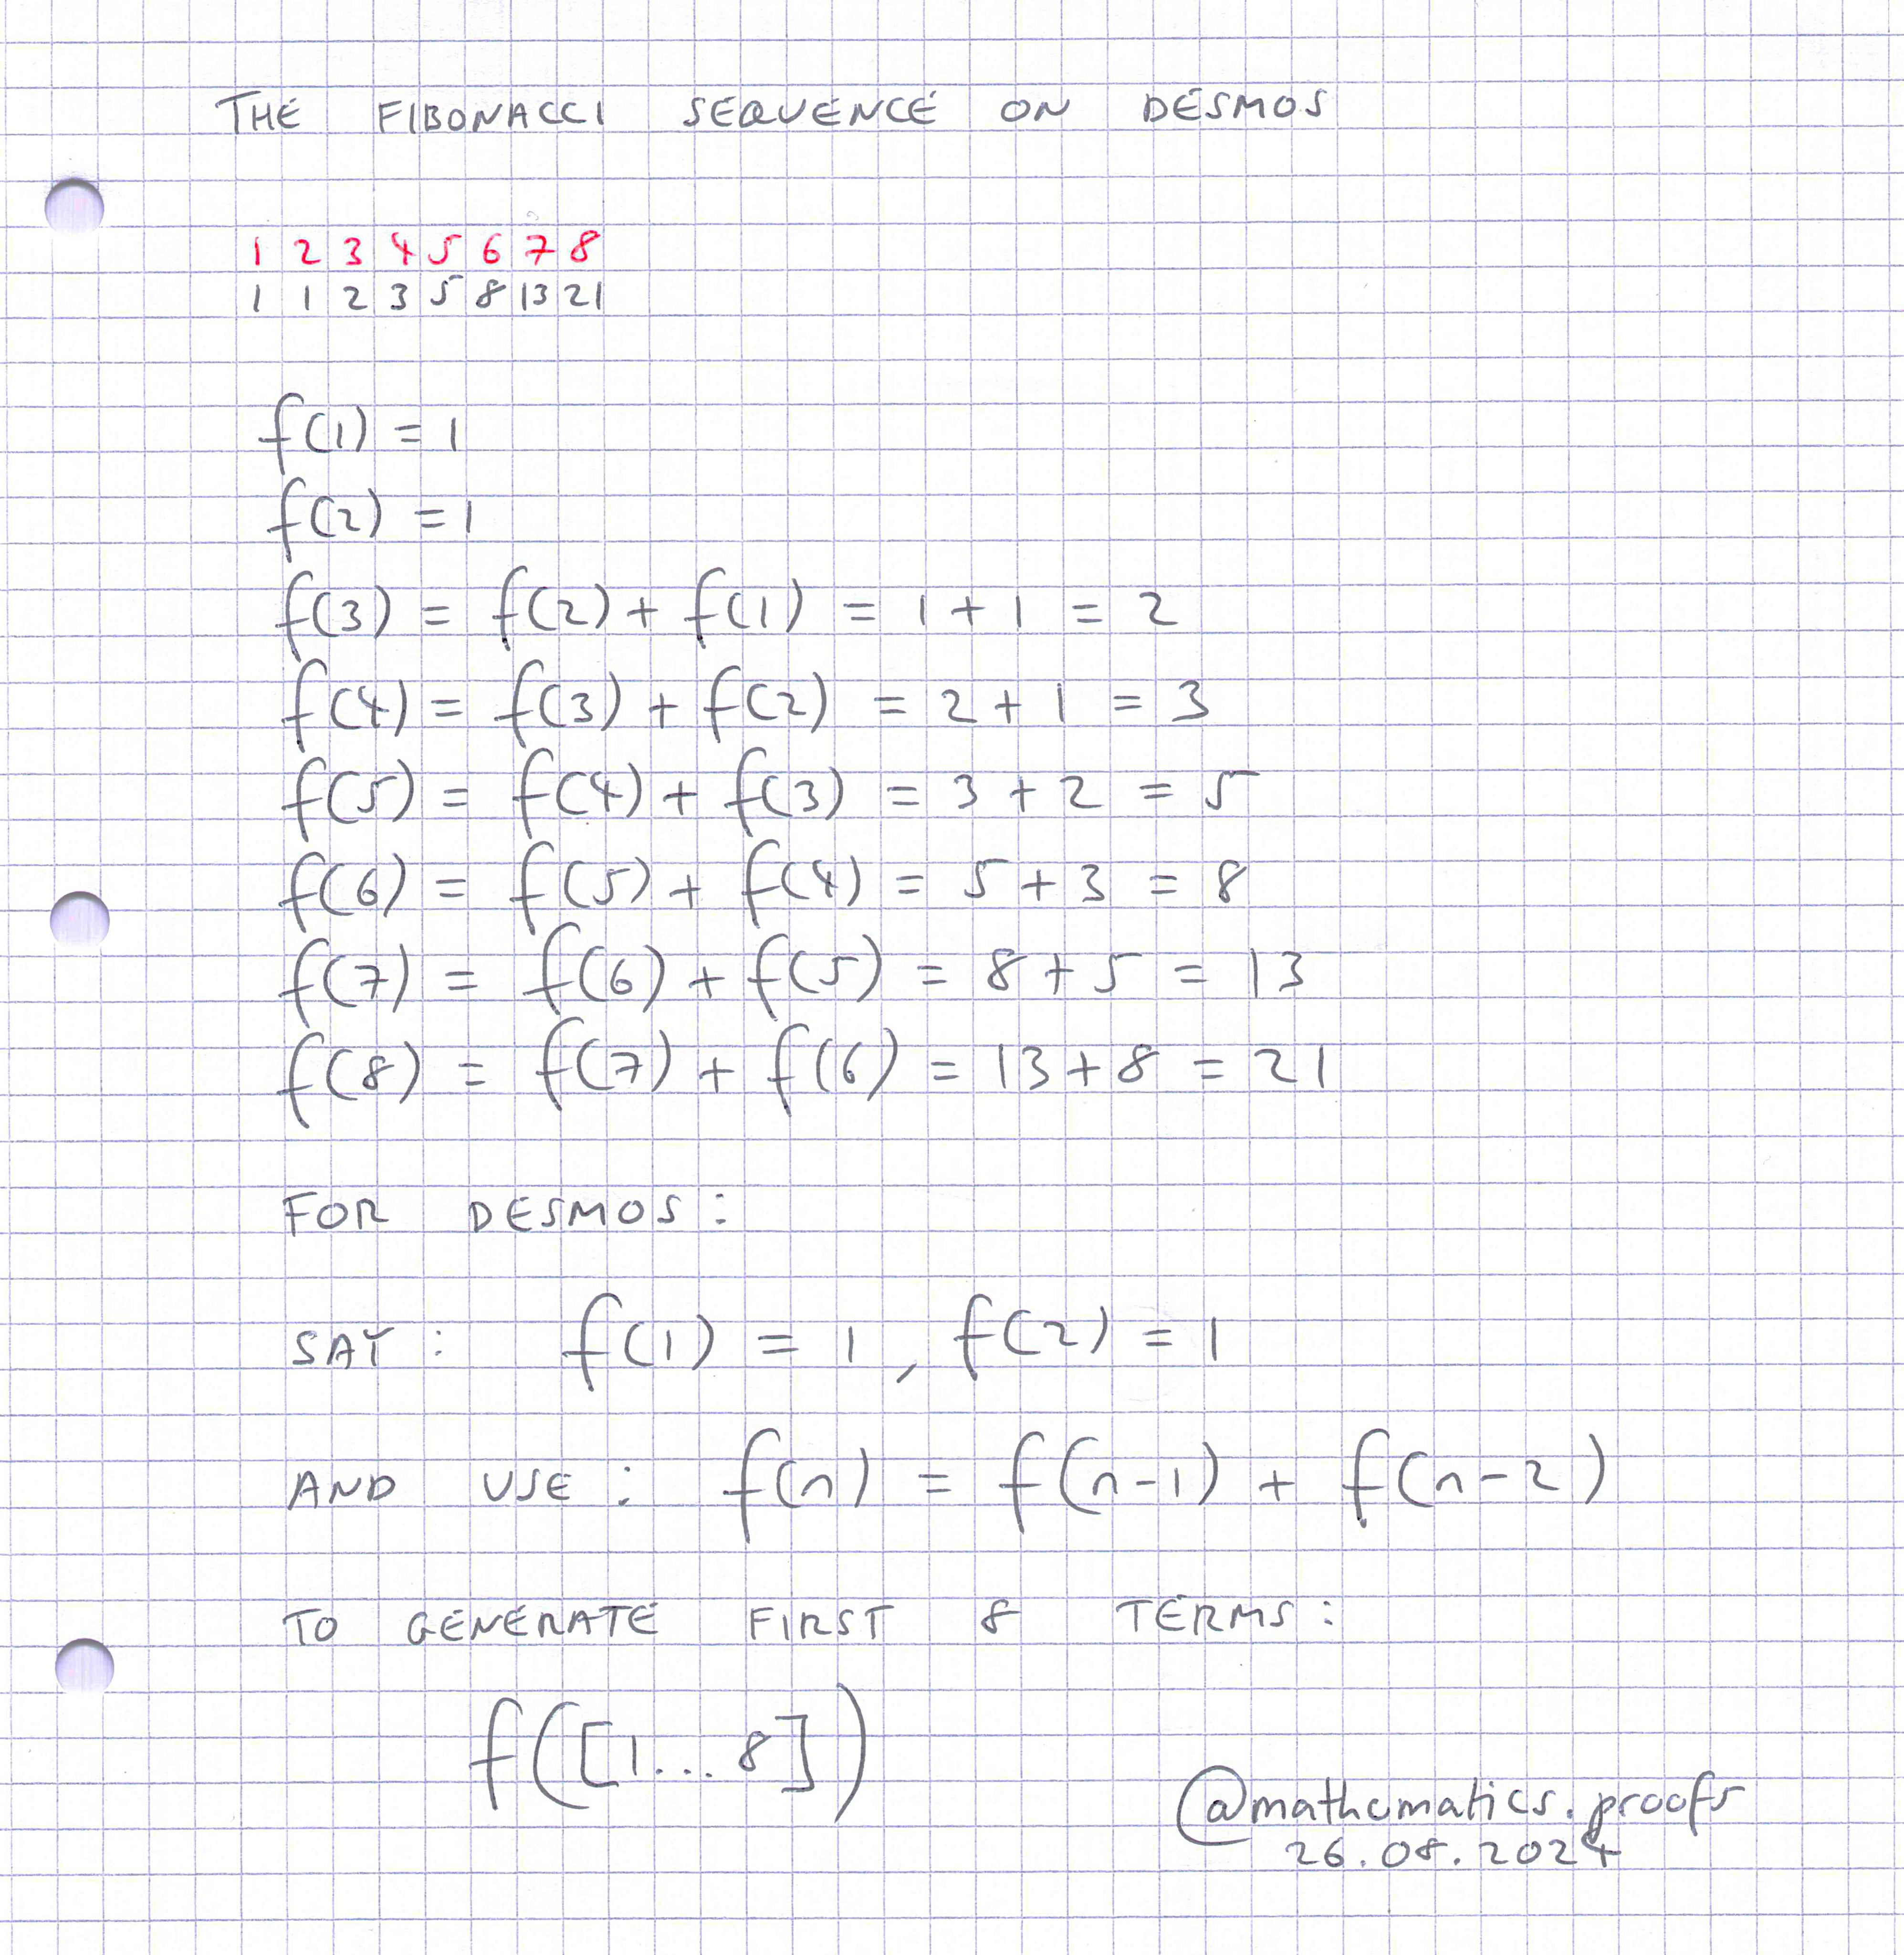 THE FIBONACCI SEQUENCE ON DESMOS
1 2 3 4 5 6 7 8
1 1 2 3 5 8 13 21
f(1) = 1
f(2) = 1
f(3) = f(2) + f(1) = 1 + 1 = 2
f(4) = f(3) + f(2) = 2 + 1 = 3
f(5) = f(4) + f(3) = 3 + 2 = 5
f(6) = f(5) + f(4) = 5 + 3 = 8
f(7) = f(6) + f(5) = 8 + 5 = 13
f(8) = f(7) + f(6) = 13 + 8 = 21
FOR DESMOS:
SAY: f(1) = 1, f(2) = 1
AND USE: f(n) = f(n-1) + f(n-2)
TO GENERATE FIRST 8 TERMS:
f([1...8])
@mathematics.proofs
26.08.2024